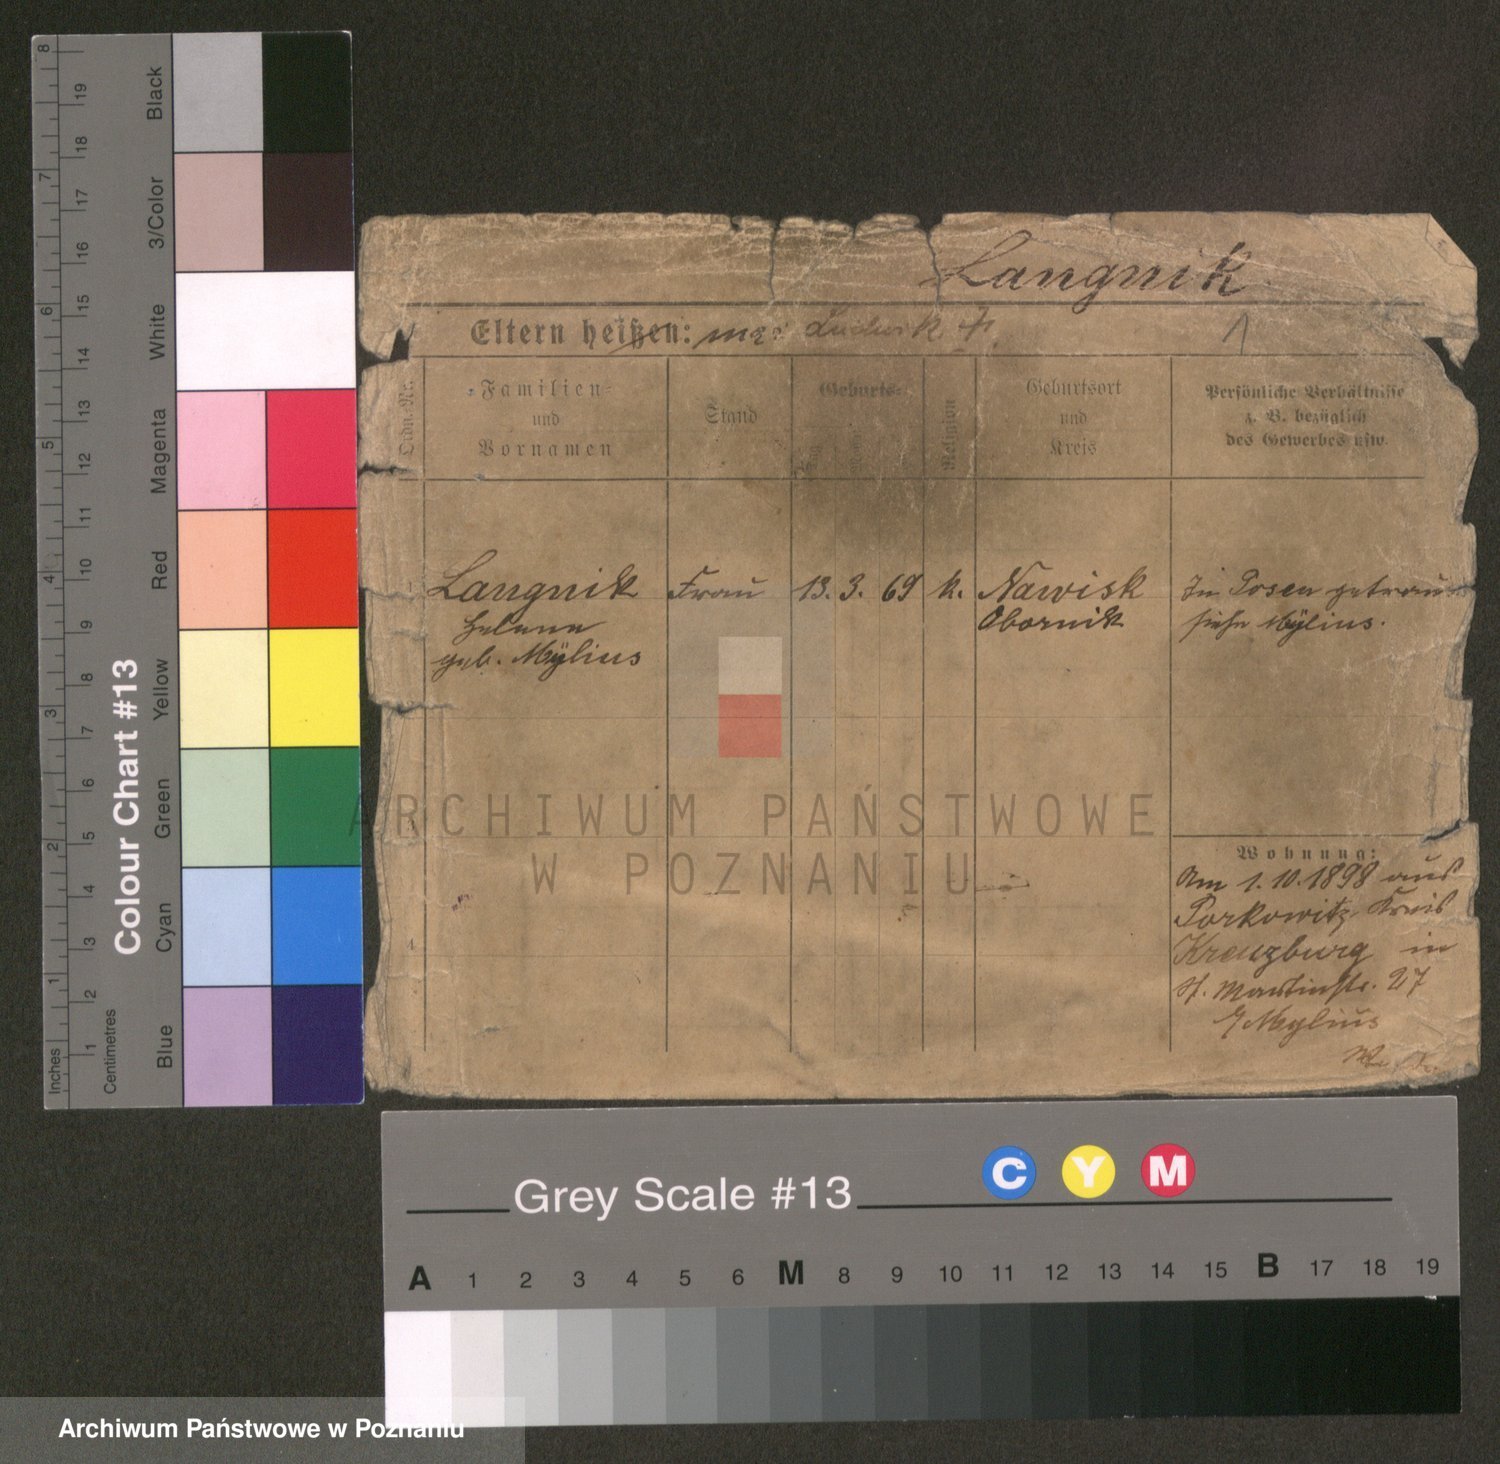 Langnik
Eltern heißen: Ludwik
Ordn.-Nr.
Familien-
und
Vornamen
Stand
Geburts-
Religion
Geburtsort
und
Kreis
Persönliche Verhältnisse
z. B. bezüglich
des Gewerbes usw.
Langnik Frau 13. 3. 69 k. Nawisk In Posen getraut
Helene Obornik siehe Mÿlius.
geb. Mÿlius
Wohnung:
Am 1.10.1898 aus
Porkowitz Kreis
Kreuzburg in
St. Martinstr. 27
Mylius
4
ARCHIWUM PAŃSTWOWE
W POZNANIU
Colour Chart #13
Inches
1 2 3 4 5 6 7 8
Centimetres
1 2 3 4 5 6 7 8 9 10 11 12 13 14 15 16 17 18 19
Blue Cyan Green Yellow Red Magenta White 3/Color Black
Grey Scale #13 C Y M
A 1 2 3 4 5 6 M 8 9 10 11 12 13 14 15 B 17 18 19
Archiwum Państwowe w Poznaniu